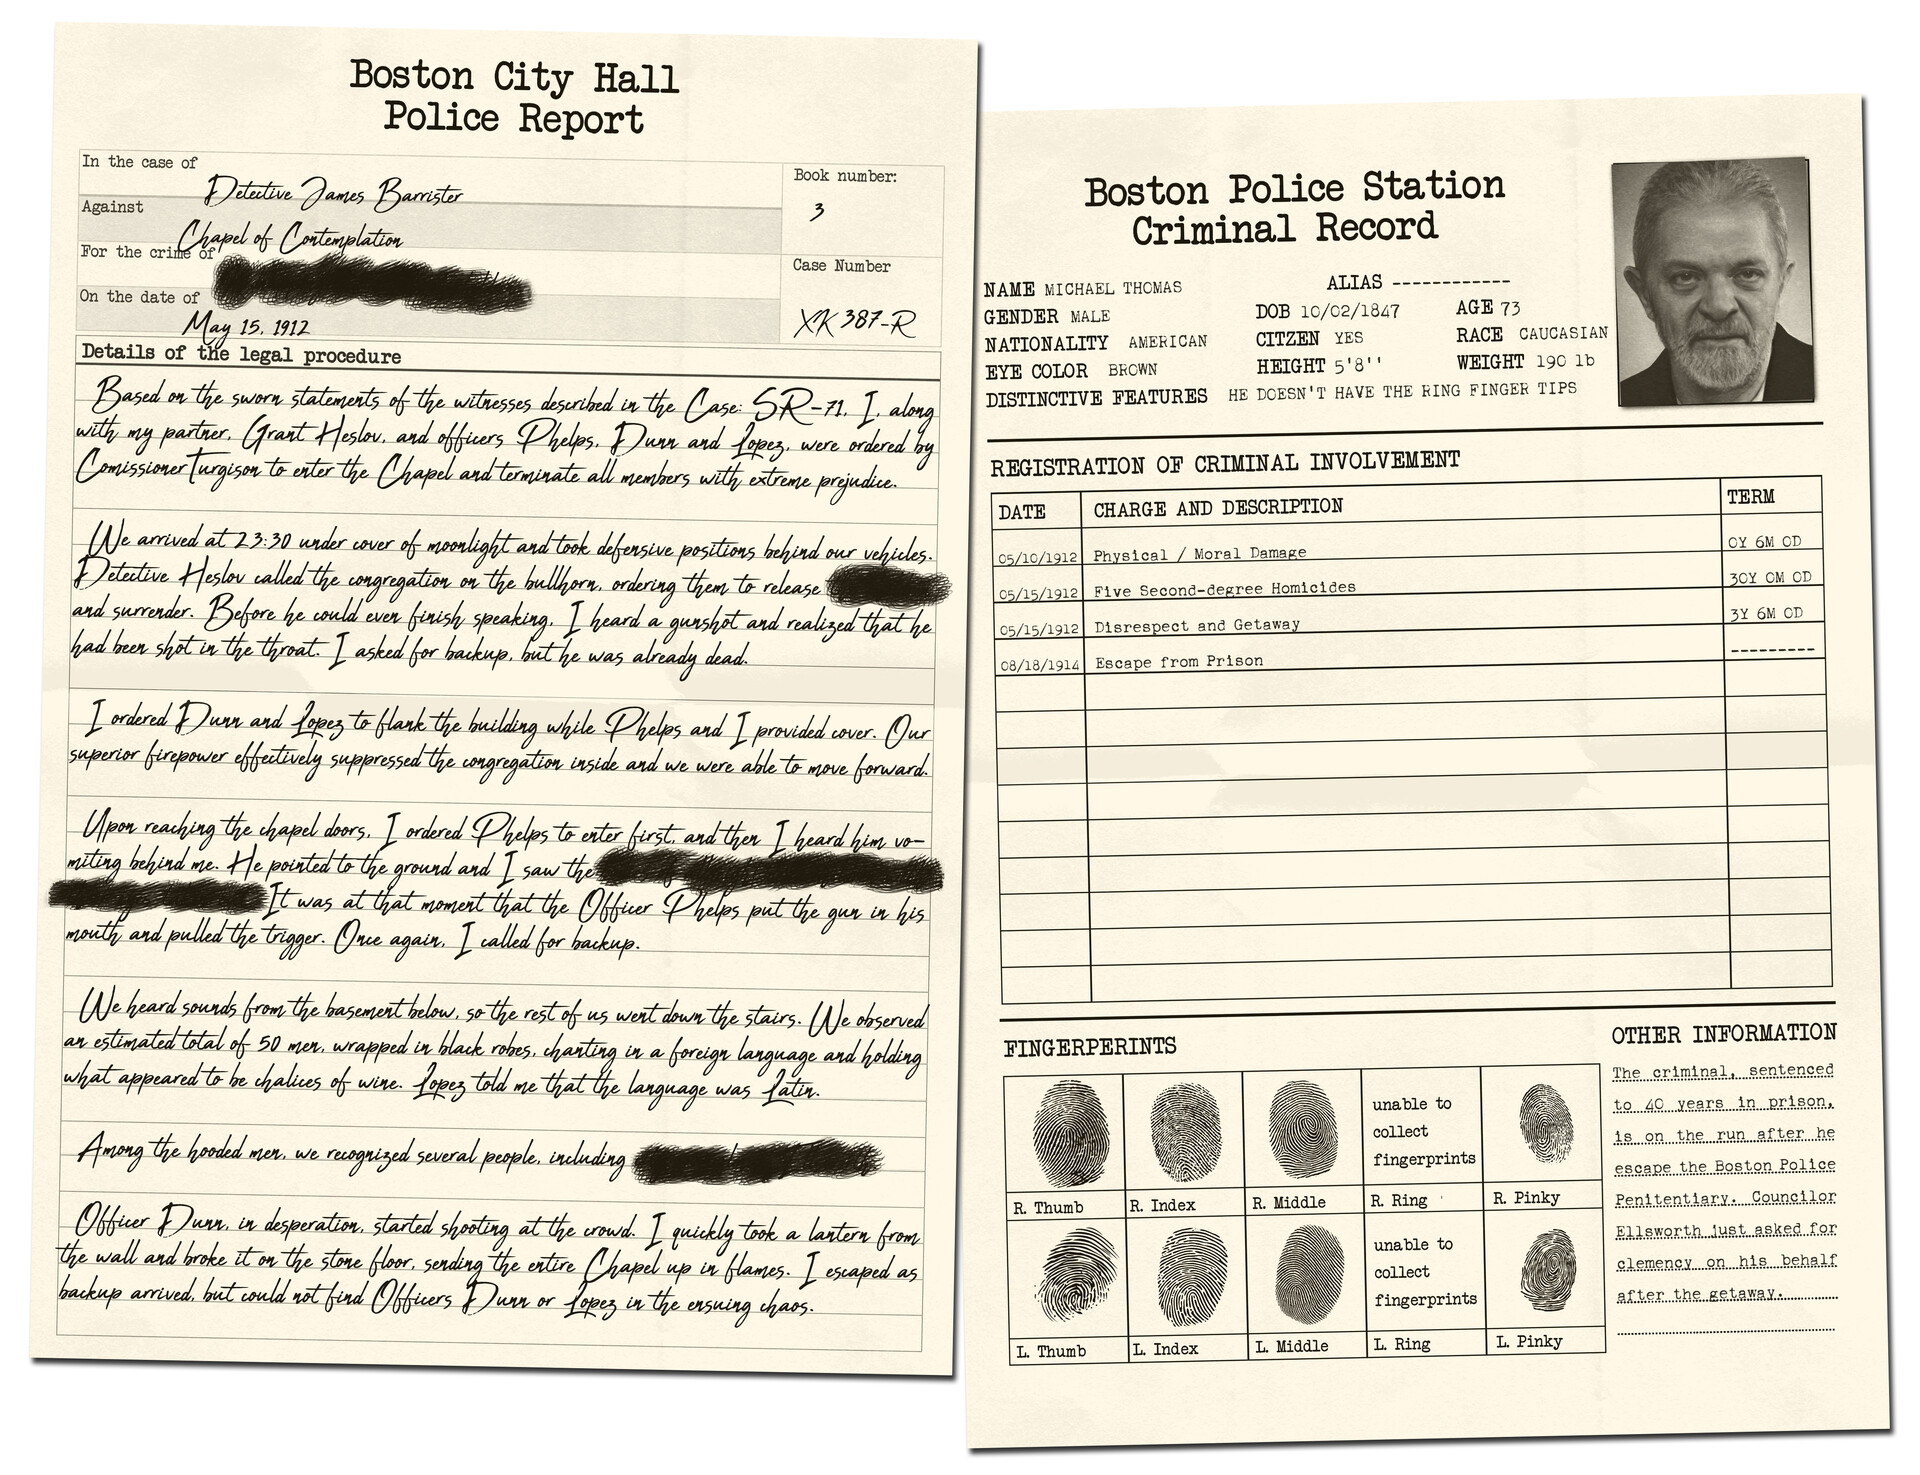 Boston City Hall
Police Report
In the case of
Detective James Barrister
Against
Chapel of Contemplation
For the crime of
On the date of
May 15, 1912
Book number:
3
Case Number
XK 387-R
Details of the legal procedure
Based on the sworn statements of the witnesses described in the Case: SR-71, I, along
with my partner, Grant Heslov, and officers Phelps, Dunn and Lopez, were ordered by
Comissioner Turgison to enter the Chapel and terminate all members with extreme prejudice.
We arrived at 23:30 under cover of moonlight and took defensive positions behind our vehicles.
Detective Heslov called the congregation on the bullhorn, ordering them to release
and surrender. Before he could even finish speaking, I heard a gunshot and realized that he
had been shot in the throat. I asked for backup, but he was already dead.
I ordered Dunn and Lopez to flank the building while Phelps and I provided cover. Our
superior firepower effectively suppressed the congregation inside and we were able to move forward.
Upon reaching the chapel doors, I ordered Phelps to enter first, and then I heard him vo-
miting behind me. He pointed to the ground and I saw the
It was at that moment that the Officer Phelps put the gun in his
mouth and pulled the trigger. Once again, I called for backup.
We heard sounds from the basement below, so the rest of us went down the stairs. We observed
an estimated total of 50 men, wrapped in black robes, chanting in a foreign language and holding
what appeared to be chalices of wine. Lopez told me that the language was Latin.
Among the hooded men, we recognized several people, including
Officer Dunn, in desperation, started shooting at the crowd. I quickly took a lantern from
the wall and broke it on the stone floor, sending the entire Chapel up in flames. I escaped as
backup arrived, but could not find Officers Dunn or Lopez in the ensuing chaos.
Boston Police Station
Criminal Record
NAME MICHAEL THOMAS ALIAS ------------
GENDER MALE DOB 10/02/1847 AGE 73
NATIONALITY AMERICAN CITZEN YES RACE CAUCASIAN
EYE COLOR BROWN HEIGHT 5'8'' WEIGHT 190 lb
DISTINCTIVE FEATURES HE DOESN'T HAVE THE RING FINGER TIPS
REGISTRATION OF CRIMINAL INVOLVEMENT
DATE CHARGE AND DESCRIPTION TERM
05/10/1912 Physical / Moral Damage 0Y 6M 0D
05/15/1912 Five Second-degree Homicides 30Y 0M 0D
05/15/1912 Disrespect and Getaway 3Y 6M 0D
08/18/1914 Escape from Prison ---------
FINGERPERINTS
unable to
collect
fingerprints
R. Thumb R. Index R. Middle R. Ring R. Pinky
unable to
collect
fingerprints
L. Thumb L. Index L. Middle L. Ring L. Pinky
OTHER INFORMATION
The criminal, sentenced
to 40 years in prison,
is on the run after he
escape the Boston Police
Penitentiary. Councilor
Ellsworth just asked for
clemency on his behalf
after the getaway.